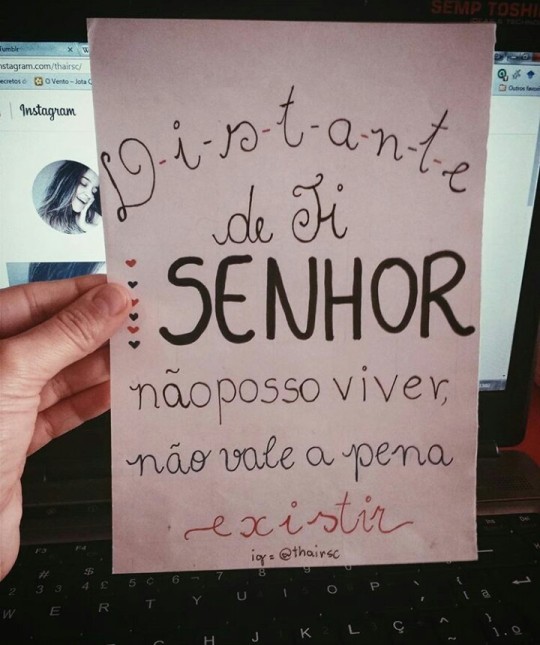 SEMP TOSHI
Tumblr
nstagram.com/thairsc/
ecretos
O Vento – Jota Q
Outros favori
Instagram
D-i-s-t-a-n-t-e
de Ti
SENHOR
não posso viver,
não vale a pena
existir
ig = @thairsc
W E R T Y U I O P
H J K L Ç